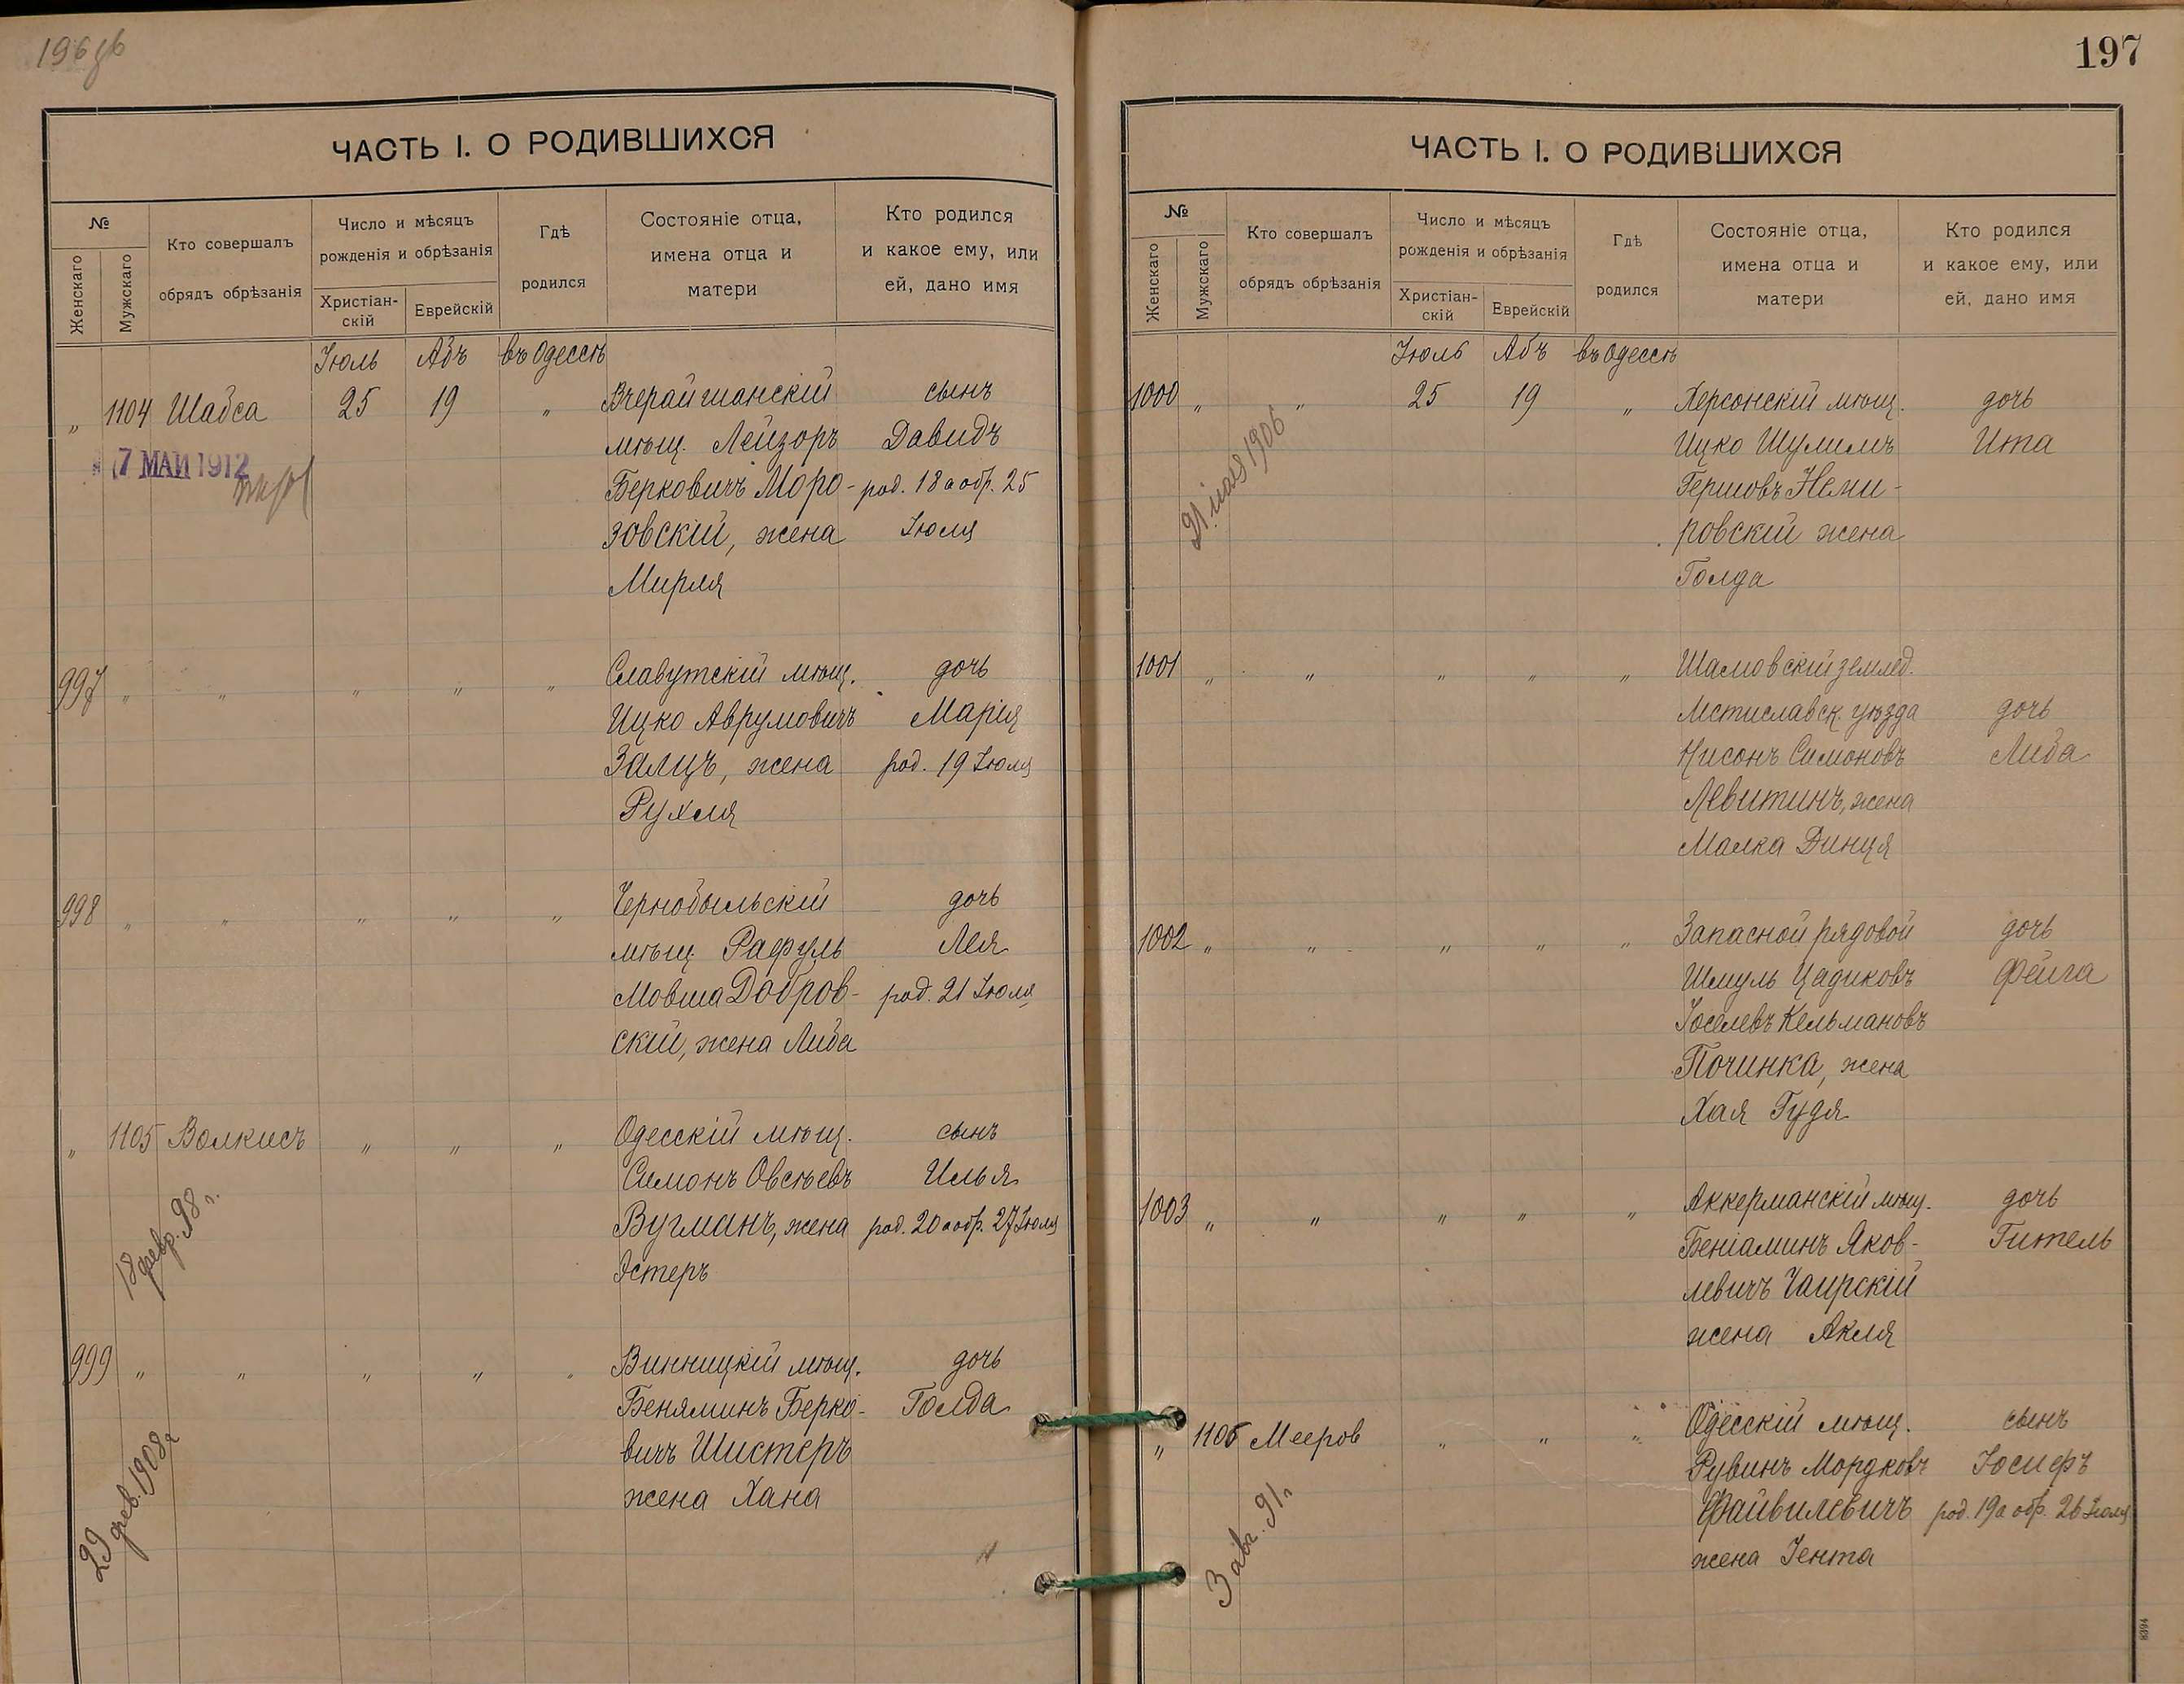 197
ЧАСТЬ I. О РОДИВШИХСЯ
№
Женскаго
Мужскаго
Кто совершалъ
обрядъ обрѣзанія
Число и мѣсяцъ
рожденія и обрѣзанія
Христіан-
скій
Еврейскій
Гдѣ
родился
Состояніе отца,
имена отца и
матери
Кто родился
и какое ему, или
ей, дано имя
Іюль Абъ въ Одессѣ
„ 1104 Шабса 25 19 „ Вчерайшанскій сынъ
мѣщ. Лейзоръ Давидъ
17 МАЙ 1912
Берковичъ Моро- род. 18 а обр. 25
зовскій, жена Іюля
Мирля
997 „ „ „ „ „ Славутскій мѣщ. дочь
Ицко Аврумовичъ Марія
Залцъ, жена род. 19 Іюля
Рухля
998 „ „ „ „ „ Чернобыльскій дочь
мѣщ. Рафуль Лея
Мовша Добров- род. 21 Іюля
скій, жена Либа
„ 1105 Волкисъ „ „ „ Одесскій мѣщ. сынъ
Симонъ Овсѣевъ Илья
18 февр. 98 г.
Вугманъ, жена род. 20 а обр. 27 Іюля
Эстеръ
999 „ „ „ „ „ Винницкій мѣщ. дочь
Беняминъ Берко- Голда
вичъ Шистеръ
жена Хана
29 фев. 1908 г.
ЧАСТЬ I. О РОДИВШИХСЯ
№
Женскаго
Мужскаго
Кто совершалъ
обрядъ обрѣзанія
Число и мѣсяцъ
рожденія и обрѣзанія
Христіан-
скій
Еврейскій
Гдѣ
родился
Состояніе отца,
имена отца и
матери
Кто родился
и какое ему, или
ей, дано имя
Іюль Абъ въ Одессѣ
1000 „ „ 25 19 „ Херсонскій мѣщ. дочь
Ицко Шулимъ Ита
21 мая 1906
Гершовъ Неми-
ровскій жена
Голда
1001 „ „ „ „ „ Шамовскій землед.
Мстиславск. уѣзда дочь
Нисонъ Симоновъ Либа
Левитинъ, жена
Малка Динця
1002 „ „ „ „ „ Запасной рядовой дочь
Шмуль Цадиковъ Фейга
Іоселевъ Кельмановъ
Починка, жена
Хая Гудя
1003 „ „ „ „ „ Аккерманскій мѣщ. дочь
Беніаминъ Яков- Гитель
левичъ Чаирскій
жена Акля
„ 1106 Мееров „ „ „ Одесскій мѣщ. сынъ
Рувинъ Мордковъ Іосифъ
Файвилевичъ род. 19 а обр. 26 Іюля
жена Іента
3 авг. 91 г.
8394